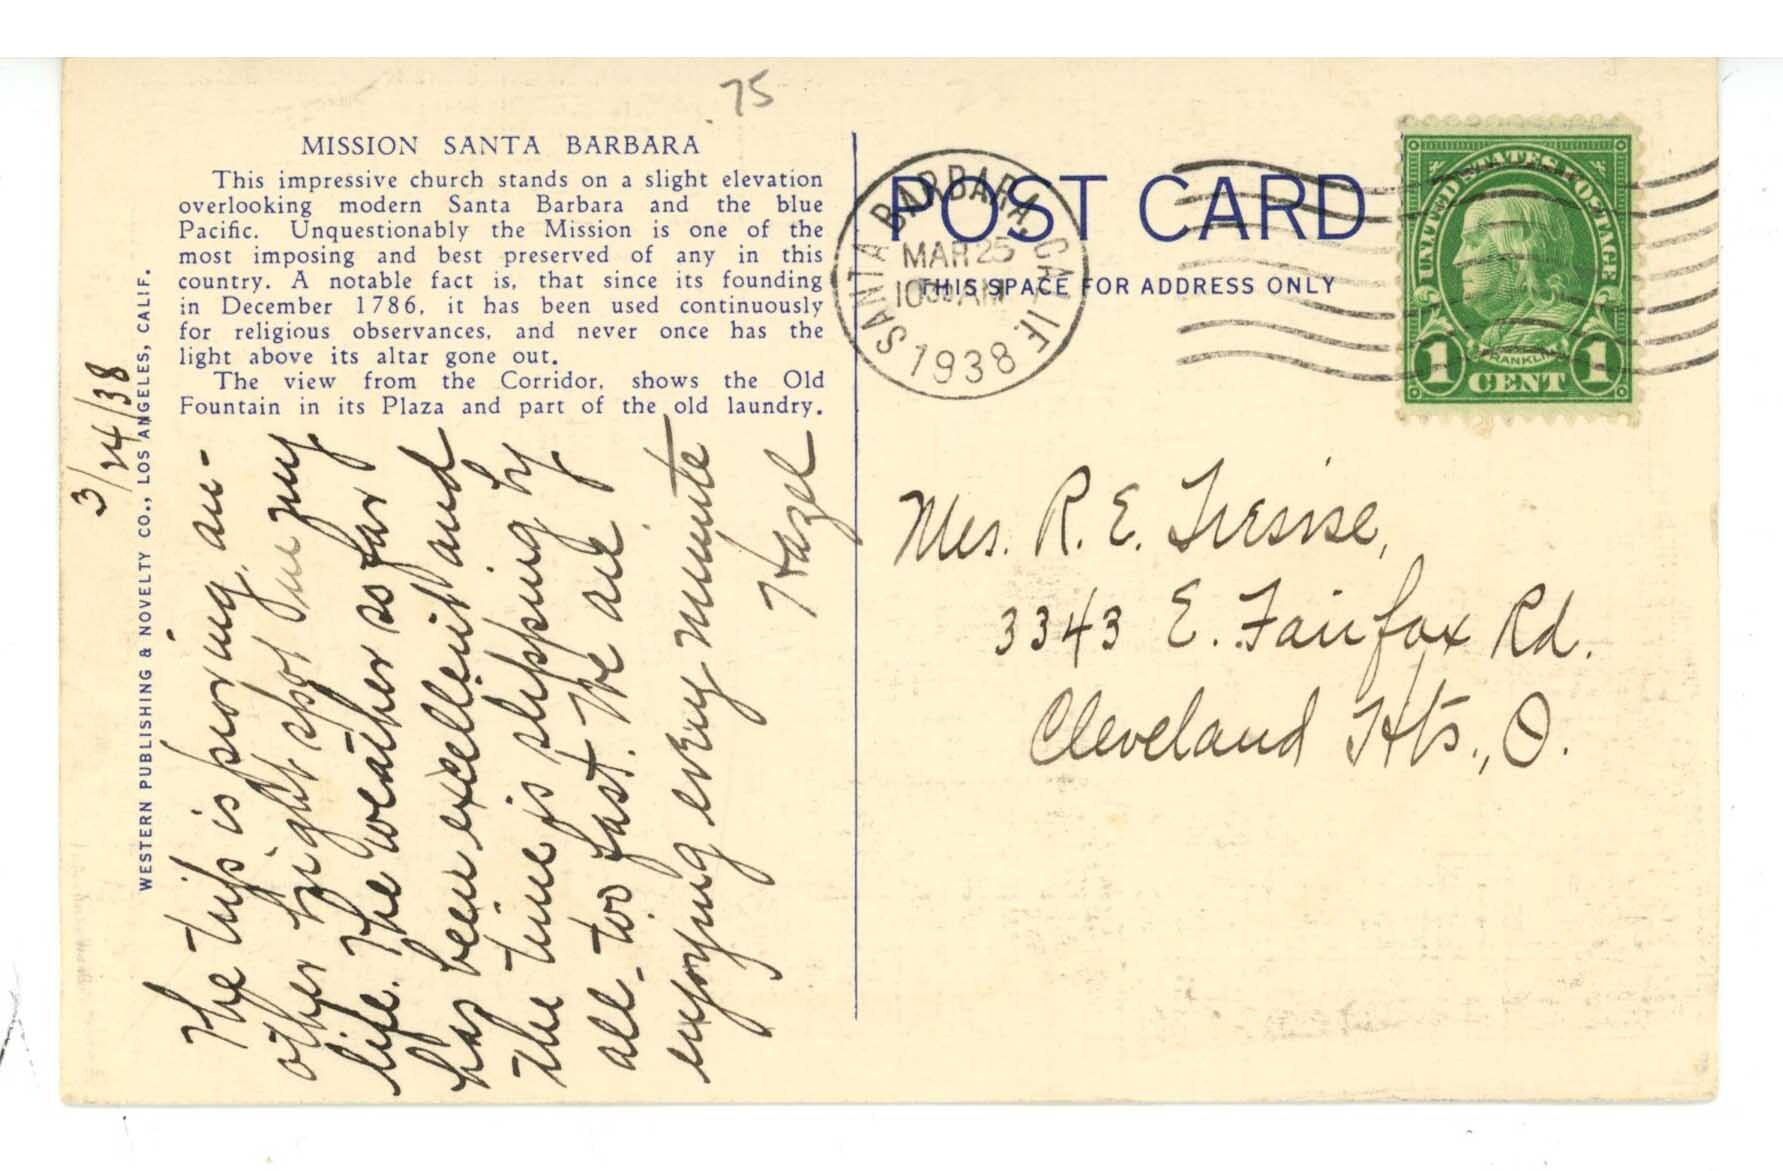 75
MISSION SANTA BARBARA
This impressive church stands on a slight elevation
overlooking modern Santa Barbara and the blue
Pacific. Unquestionably the Mission is one of the
most imposing and best preserved of any in this
country. A notable fact is, that since its founding
in December 1786, it has been used continuously
for religious observances, and never once has the
light above its altar gone out.
The view from the Corridor, shows the Old
Fountain in its Plaza and part of the old laundry.
WESTERN PUBLISHING & NOVELTY CO., LOS ANGELES, CALIF.
3/24/38
The trip is proving an-
other bright spot in my
life. The weather so far
has been excellent and
the time is slipping by
all-too fast. We are
enjoying every minute
Hazel
POST CARD
THIS SPACE FOR ADDRESS ONLY
SANTA BARBARA, CALIF.
MAR 25
10 AM
1938
UNITED STATES POSTAGE
FRANKLIN
1 CENT 1
Mrs. R. E.
3343 E. Fairfax Rd.
Cleveland Hts., O.